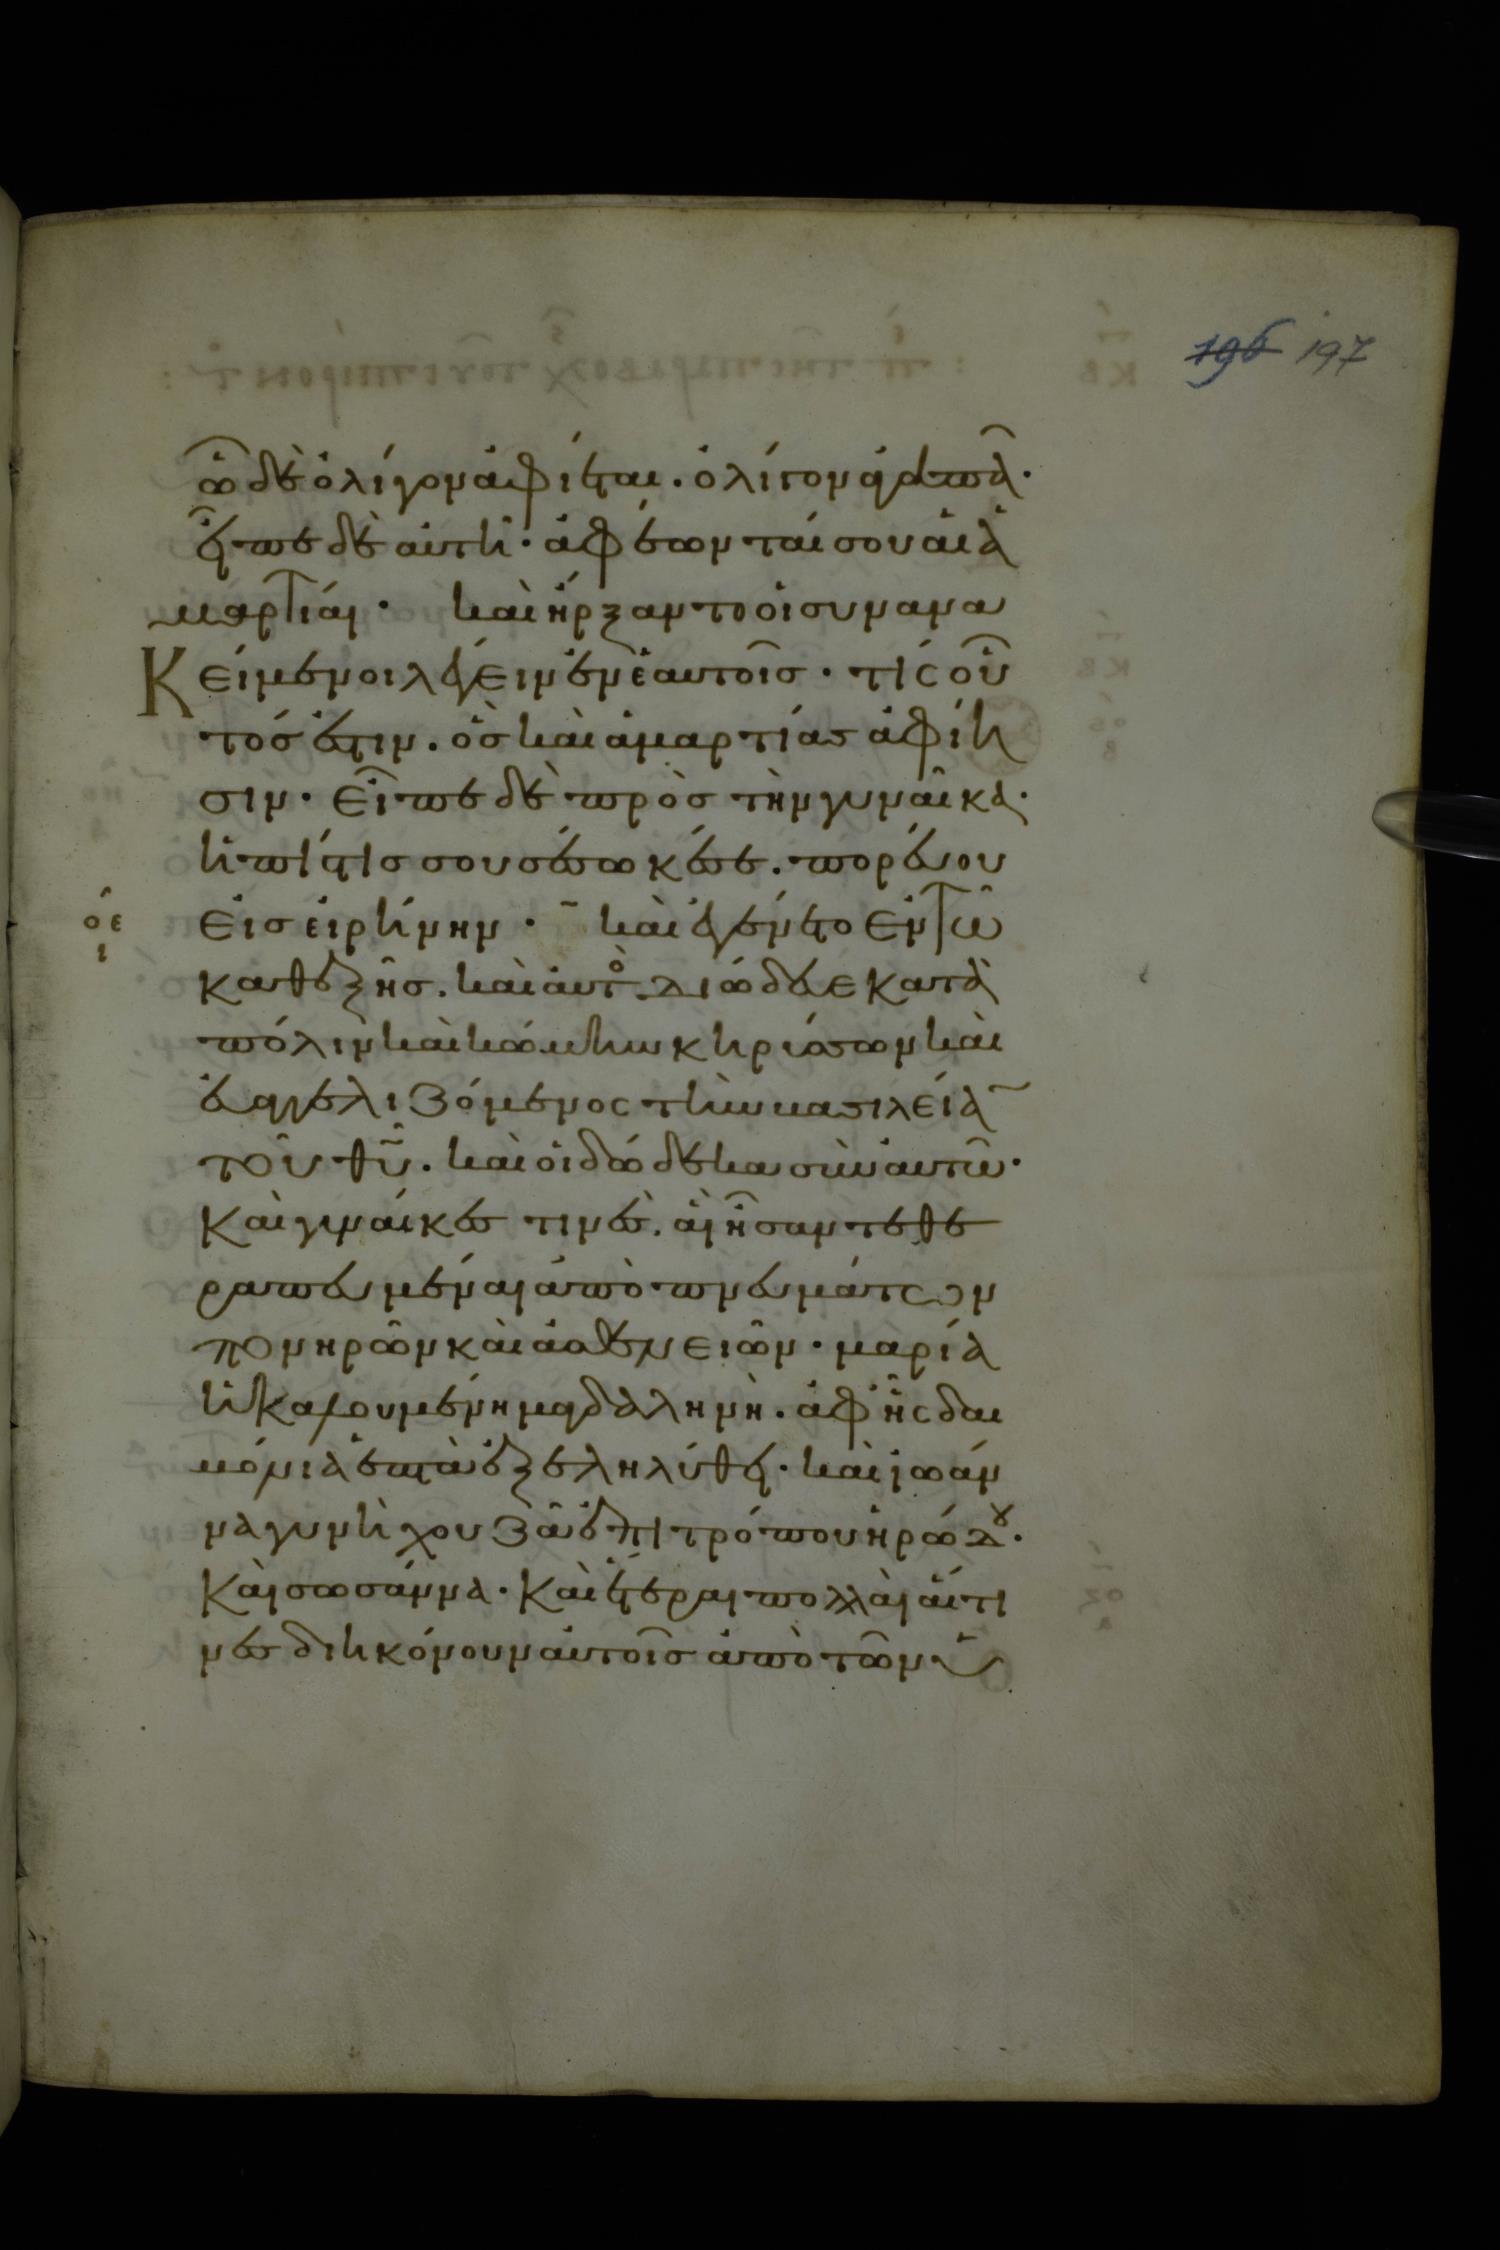 196 197
ὧ δὲ ὀλίγον ἀφίεται. ὀλίγον ἀγαπᾶ·
εἶπε δὲ αὐτῆ· ἀφέωνταί σου αἱ ἁ
μαρτίαι· καὶ ἤρξαντο οἱ συνανα
κείμενοι λέγειν ἐν ἑαυτοῖσ· τίς οὗ
τόσ ἐστιν. ὃσ καὶ ἁμαρτίασ ἀφίη
σιν· εἶπε δὲ πρὸσ τὴν γυναῖκα·
ἡ πίστισ σου σέσωκέ σε. πορεύου
οε ι εἰσ εἰρήνην· καὶ ἐγένετο ἐν τῶ
καθεξῆσ. καὶ αὐτὸ διώδευε κατὰ
πόλιν καὶ κώμην κηρύσσων καὶ
εὐαγγελιζόμενος τὴν βασιλεία
τοῦ θῦ. καὶ οἱ δώδεκα σὺν αὐτῶ·
καὶ γυναίκεσ τινὲσ. αἳ ἦσαν τεθε
ραπευμέναι ἀπὸ πνευμάτων
πονηρῶν καὶ ἀσθενειῶν· μαρία
ἡ καλουμένη μαγδαληνὴ. ἀφ ἧς δαι
μόνια ἑπτὰ ἐξεληλύθει· καὶ ἰωάν
να γυνὴ χουζᾶ ἐπιτρόπου ἡρώδου·
καὶ σωσάννα· καὶ ἕτεραι πολλαὶ αἵτι
νεσ διηκόνουν αὐτοῖσ ἀπὸ τῶν ὑ